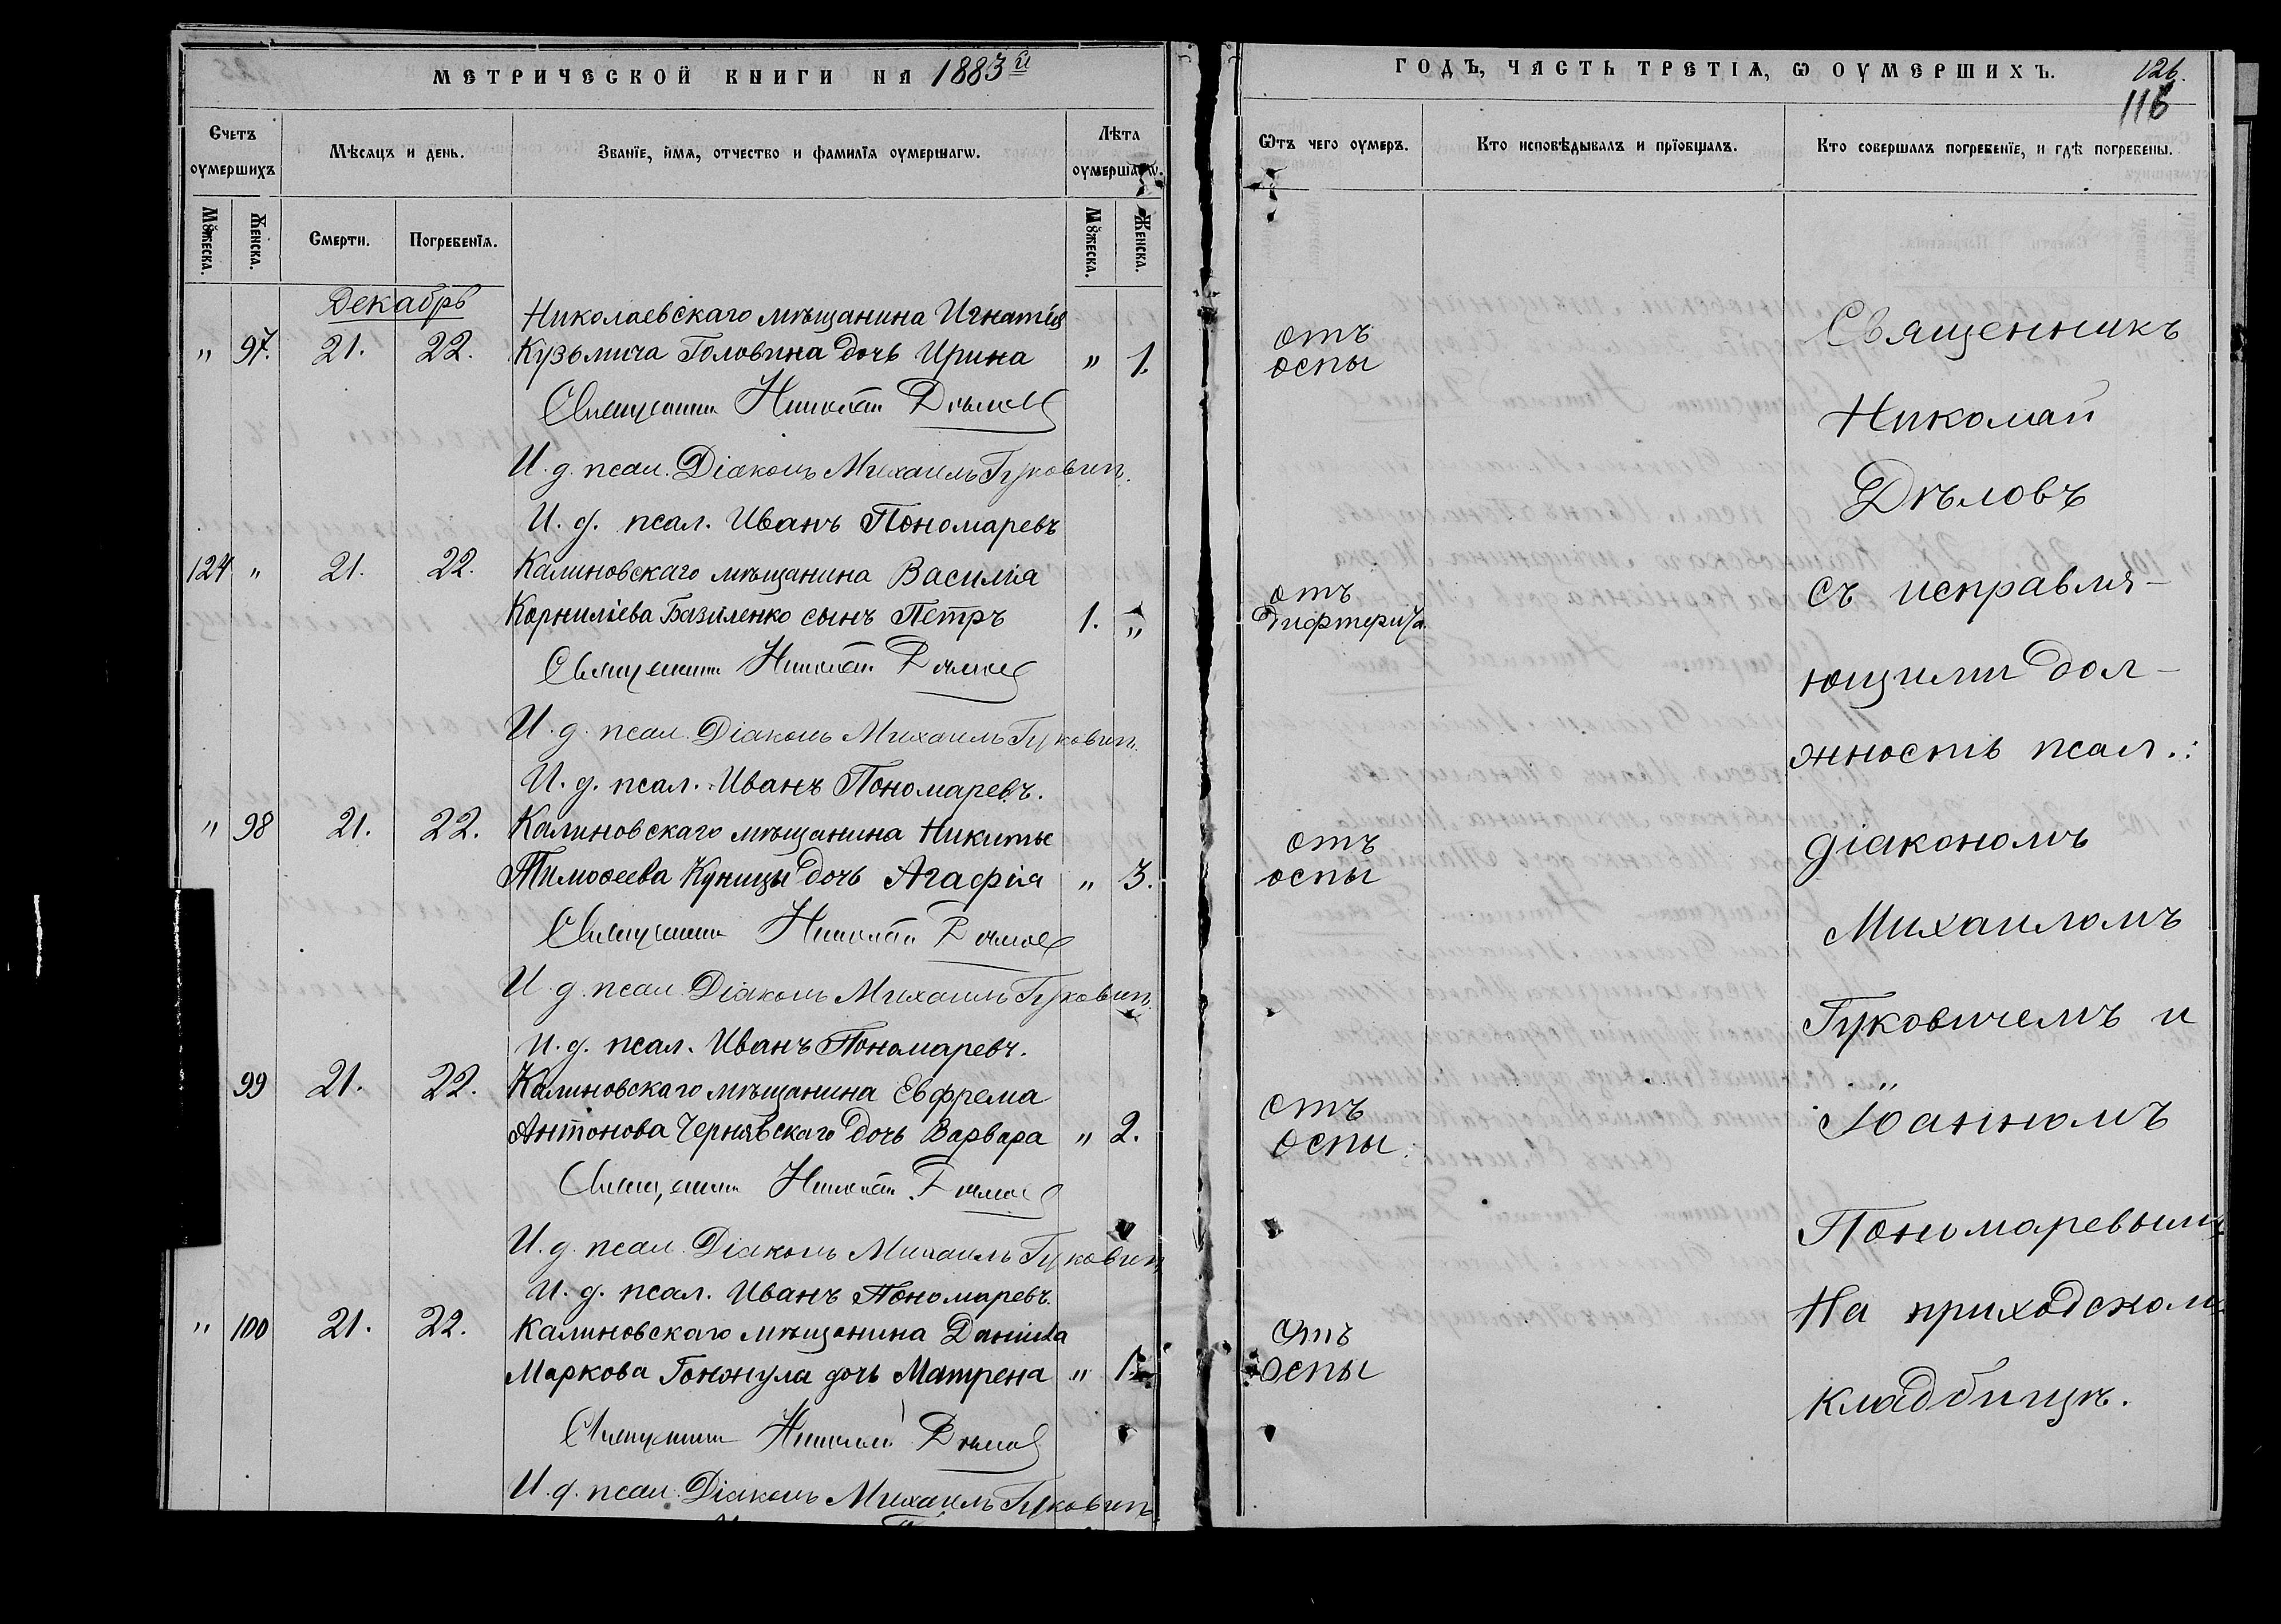 МЕТРИЧЕСКОЙ КНИГИ НА 1883й
Счетъ оумершихъ
Мѣсяцъ и день.
Званїе, имя, отчество и фамилїя оумершагѡ.
Лѣта оумершагѡ.
Мꙋжеска.
Женска.
Смерти.
Погребенїя.
Мꙋжеска.
Женска.
Декабрь
Николаевскаго мѣщанина Игнатія
" 97. 21. 22. Кузьмича Головина дочь Ирина " 1.
Священникъ Николай Дѣловъ
И. д. псал. Діаконъ Михаилъ Гуковичъ.
И. д. псал. Иванъ Пономаревъ
124 " 21. 22. Калиновскаго мѣщанина Василія
Корниліева Базиленко сынъ Петръ 1. "
Священникъ Николай Дѣловъ
И. д. псал. Діаконъ Михаилъ Гуковичъ.
И. д. псал. Иванъ Пономаревъ.
" 98 21. 22. Калиновскаго мѣщанина Никиты
Тимоѳеева Куницы дочь Агафія " 3.
Священникъ Николай Дѣловъ
И. д. псал. Діаконъ Михаилъ Гуковичъ.
И. д. псал. Иванъ Пономаревъ.
99 21. 22. Калиновскаго мѣщанина Евфрема
Антонова Чернявскаго дочь Варвара " 2.
Священникъ Николай Дѣловъ
И. д. псал. Діаконъ Михаилъ Гуковичъ
И. д. псал. Иванъ Пономаревъ.
" 100 21. 22. Калиновскаго мѣщанина Даніила
Маркова Гонжула дочь Матрена " 1.
Священникъ Николай Дѣловъ
И. д. псал. Діаконъ Михаилъ Гуковичъ.
ГОДЪ, ЧАСТЬ ТРЕТІЯ, Ѡ ОУМЕРШИХЪ.
126.
116
Ѿтъ чего оумеръ.
Кто исповѣдывалъ и прїобщалъ.
Кто совершалъ погребенїе, и гдѣ погребены.
отъ
оспы
отъ
дифтерита.
отъ
оспы
отъ
оспы.
отъ
оспы
Священникъ
Николай
Дѣловъ
съ исправля-
ющими дол-
жность псал.:
діакономъ
Михаиломъ
Гуковичемъ и
Іоанномъ
Пономаревымъ
На приходскомъ
кладбищѣ.